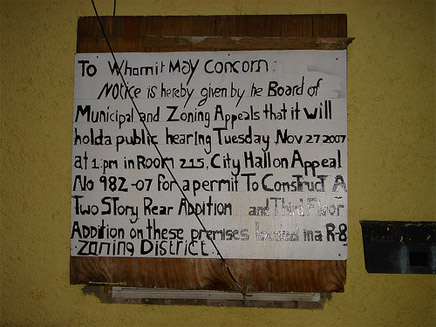 To Whomit May Concorn:
Notice is hereby given by he Board of
Municipal and Zoning Appeals that it will
hold a public hearing Tuesday Nov 27 2007
at 1:pm in Room 215, City Hall on Appeal
No 982-07 for a permit To Construct A
Two Story Rear Addition and Third Floor
Addition on these premises located in a R-8
Zoning District.